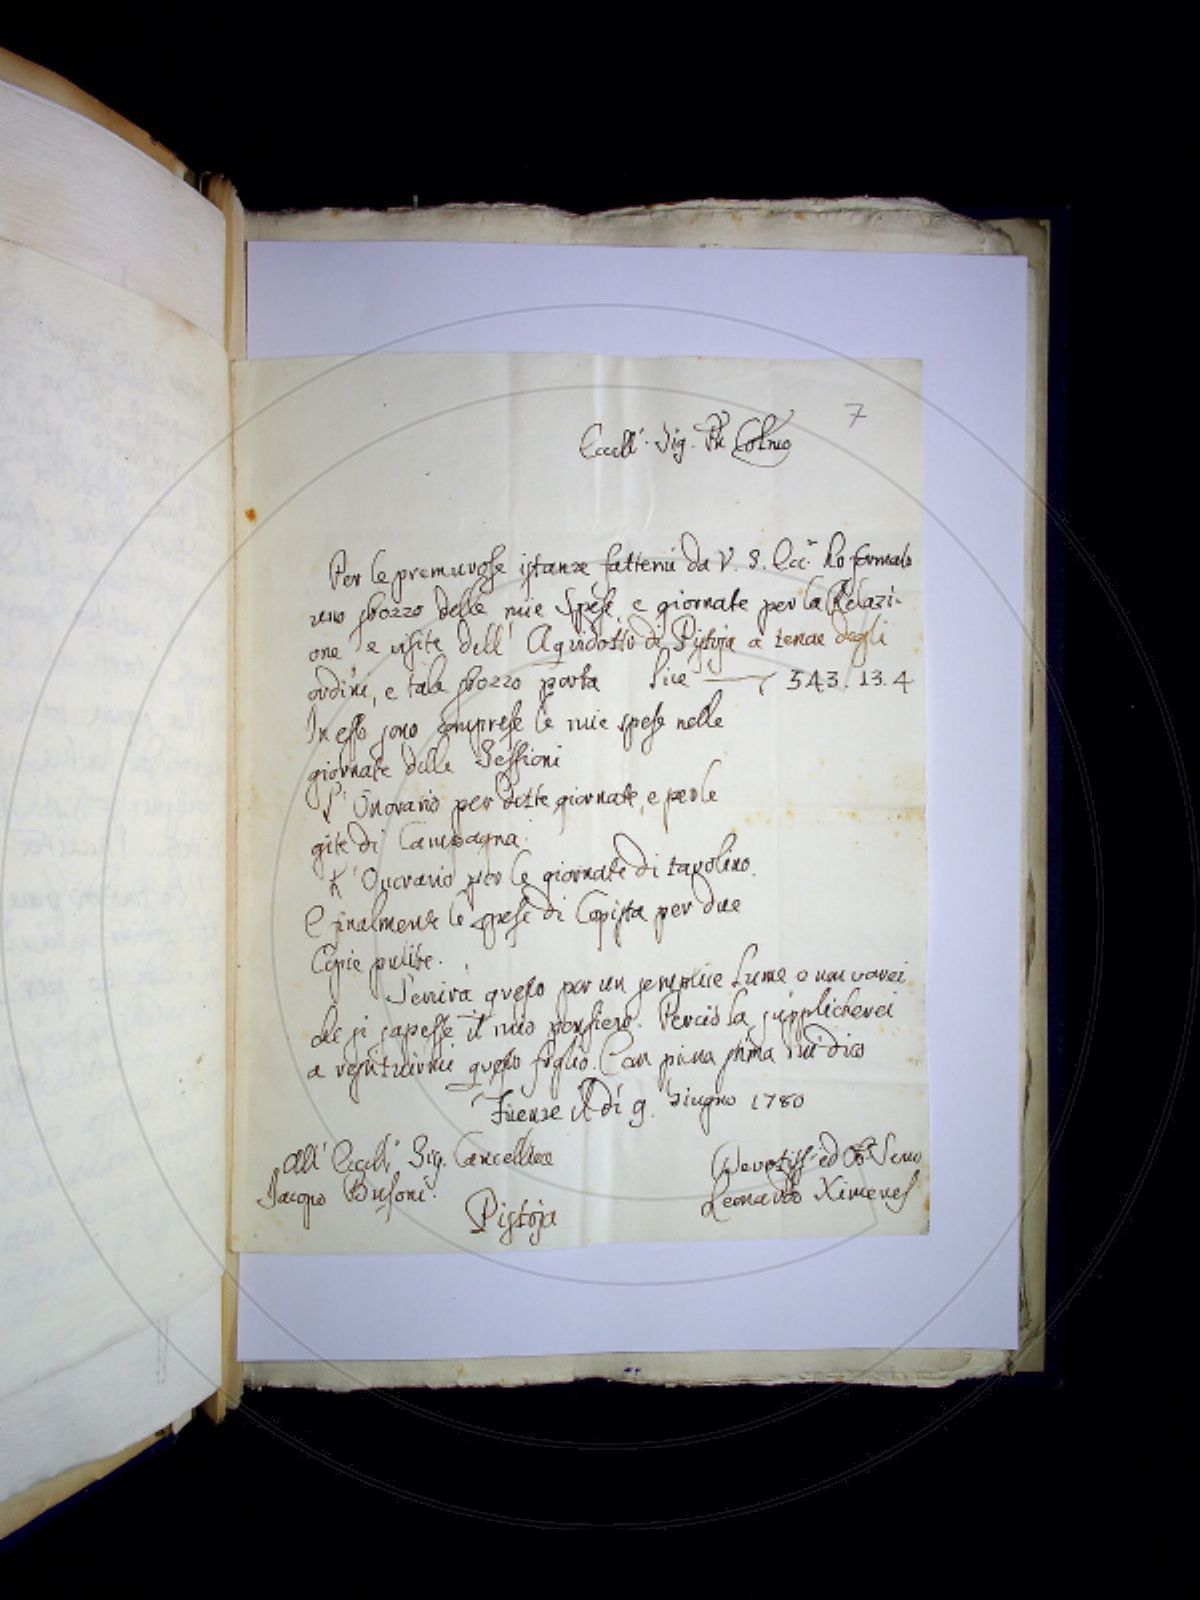 7
Eccell.^e Sig. P^n Col^mo
Per le premurose istanze fattemi da V. S. Ecc.^a ho formato
uno sbozzo delle mie Spese e giornate per la Relazi-
one e visite dell' Aquidotto di Pistoja a tenor degli
ordini, e tale sbozzo porta lire 543. 13. 4
In esso sono comprese le mie spese nelle
giornate delle Sessioni
L' Onorario per dette giornate, e per le
gite di Campagna.
L' Onorario per le giornate di tavolino.
E finalmente le spese di Copista per due
Copie pulite.
Servirà questo per un semplice lume e non vorrei
che si sapesse il mio pensiero. Perciò la supplicherei
a restituirmi questo foglio. Con piena stima mi dico
Firenze il dì 9. Giugno 1780
All' Eccell.^e Sig. Cancelliere
Jacopo Busoni.
Pistoja
Devotiss.^o ed Ob. Servo
Leonardo Ximenes